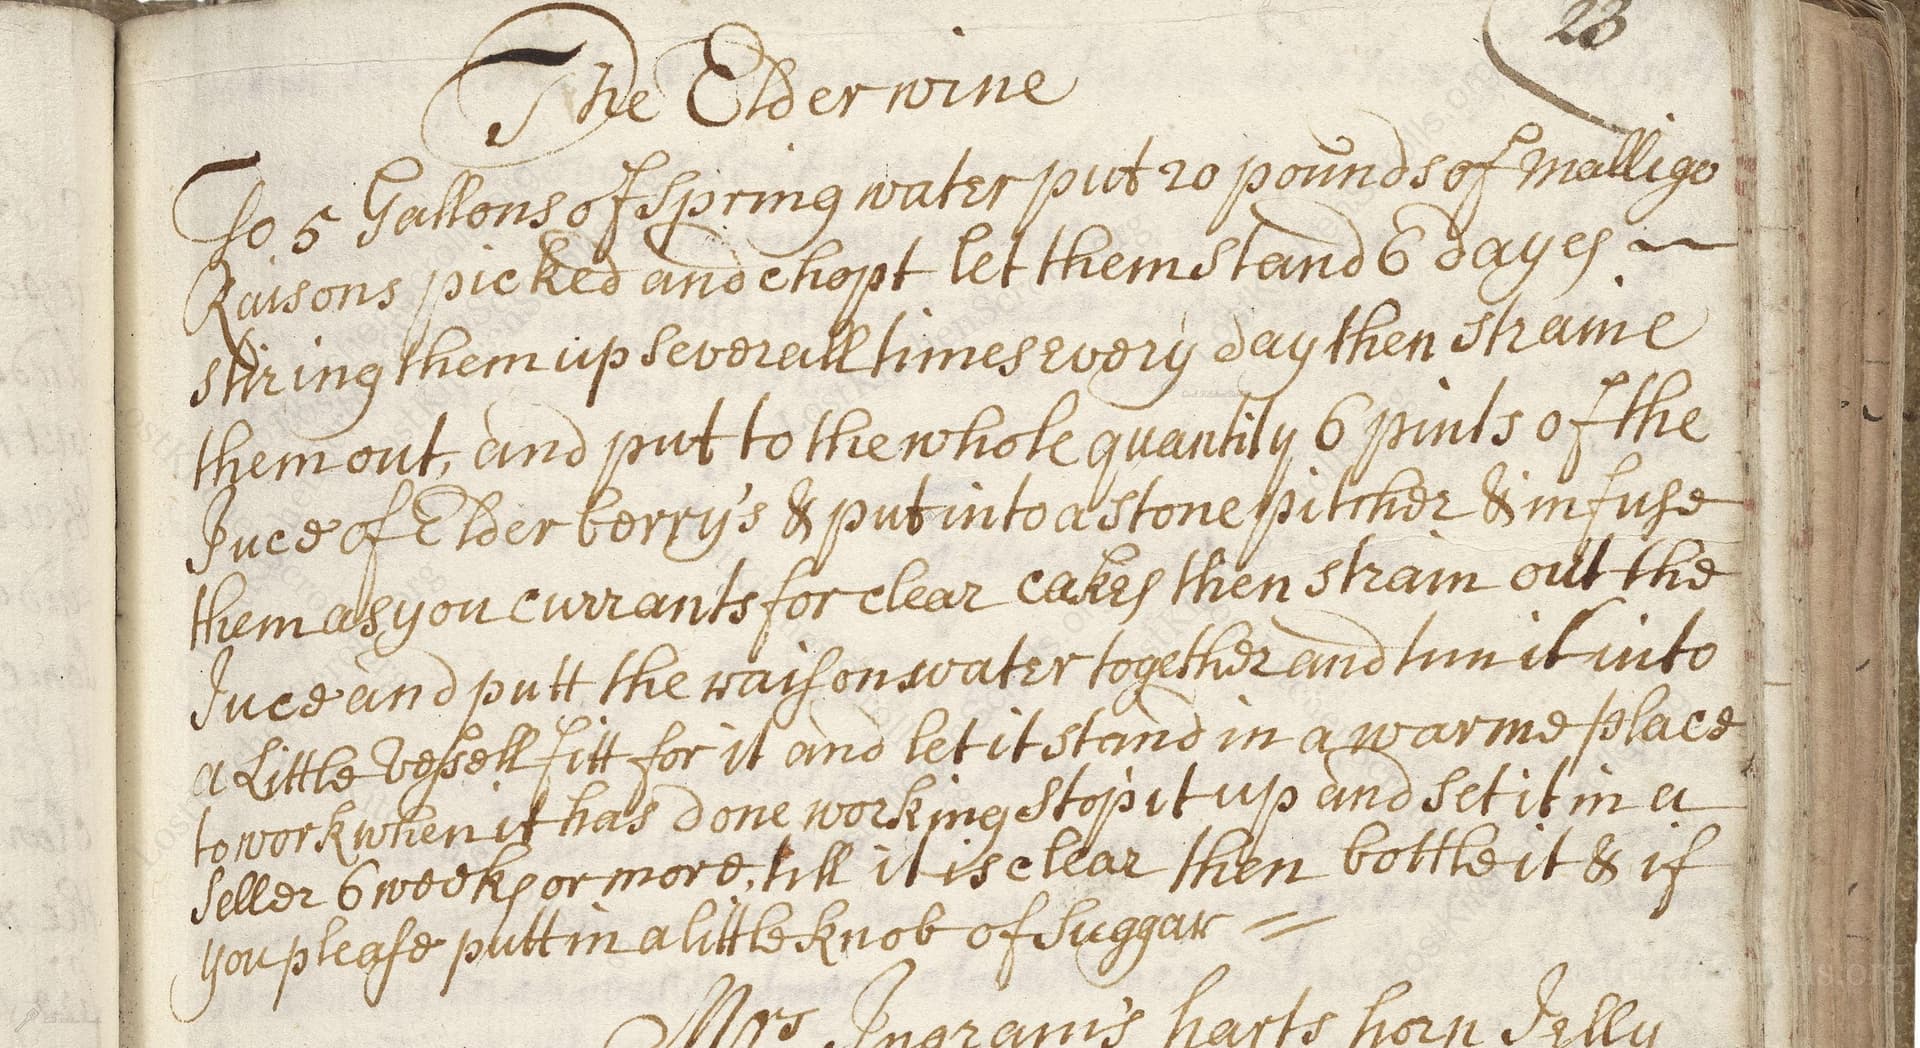 23
The Elder wine
To 5 Gallons of spring water put 20 pounds of Malligo
Raisons picked and chopt let them stand 6 dayes
stiring them up severall times every day then straine
them out, and put to the whole quantity 6 pints of the
Juce of Elder berry's & put into a stone pitcher & infuse
them as you currants for clear cakes then strain out the
Juce and putt the raison water together and tun it into
a Little vessell fitt for it and let it stand in a warme place
to work when it has done working stop it up and set it in a
seller 6 weeks or more, till it is clear then bottle it & if
you please putt in a little knob of suggar
Mrs Ingram's harts horn Jelly